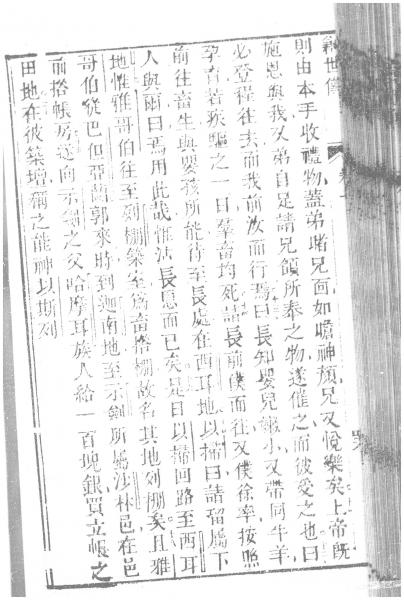 則由本手收禮物蓋弟睹兄面如瞻神顏兄又悅樂矣上帝既
施恩與我又弟自足請兄領所奉之物遂催之而彼愛之也曰
必登程往去而我前汝而行焉曰長知嬰兒嫩小又帶同牛羊
孕育若疾驅之一日羣畜均死請長前僕而往又僕徐率按照
前往畜生與嬰孩所能待至長處在西耳地以掃曰請留屬下
人與爾曰焉用此哉惟沾長恩而已矣是日以掃回路至西耳
地惟雅哥伯往至列棚築室為畜搭棚故名其地列棚矣且雅
哥伯從巴但亞蘭郭來時到迦南地至示劍所屬沙林邑在邑
前搭帳房遂向示劍之父哈摩耳族人給一百塊銀買立帳之
田地在彼築壇稱之能神以斯列